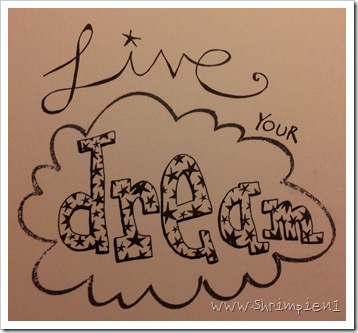 Live
YOUR
dream
www.Shrimpien1